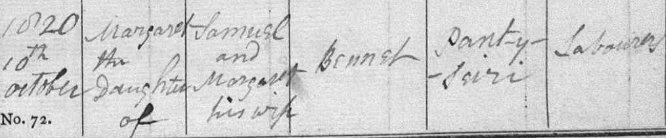 1820
10th
October
No. 72.
Margaret
the
Daughter
of
Samuel
and
Margaret
his wife
Bennet
Pant-y-
-Seiri
Labourer